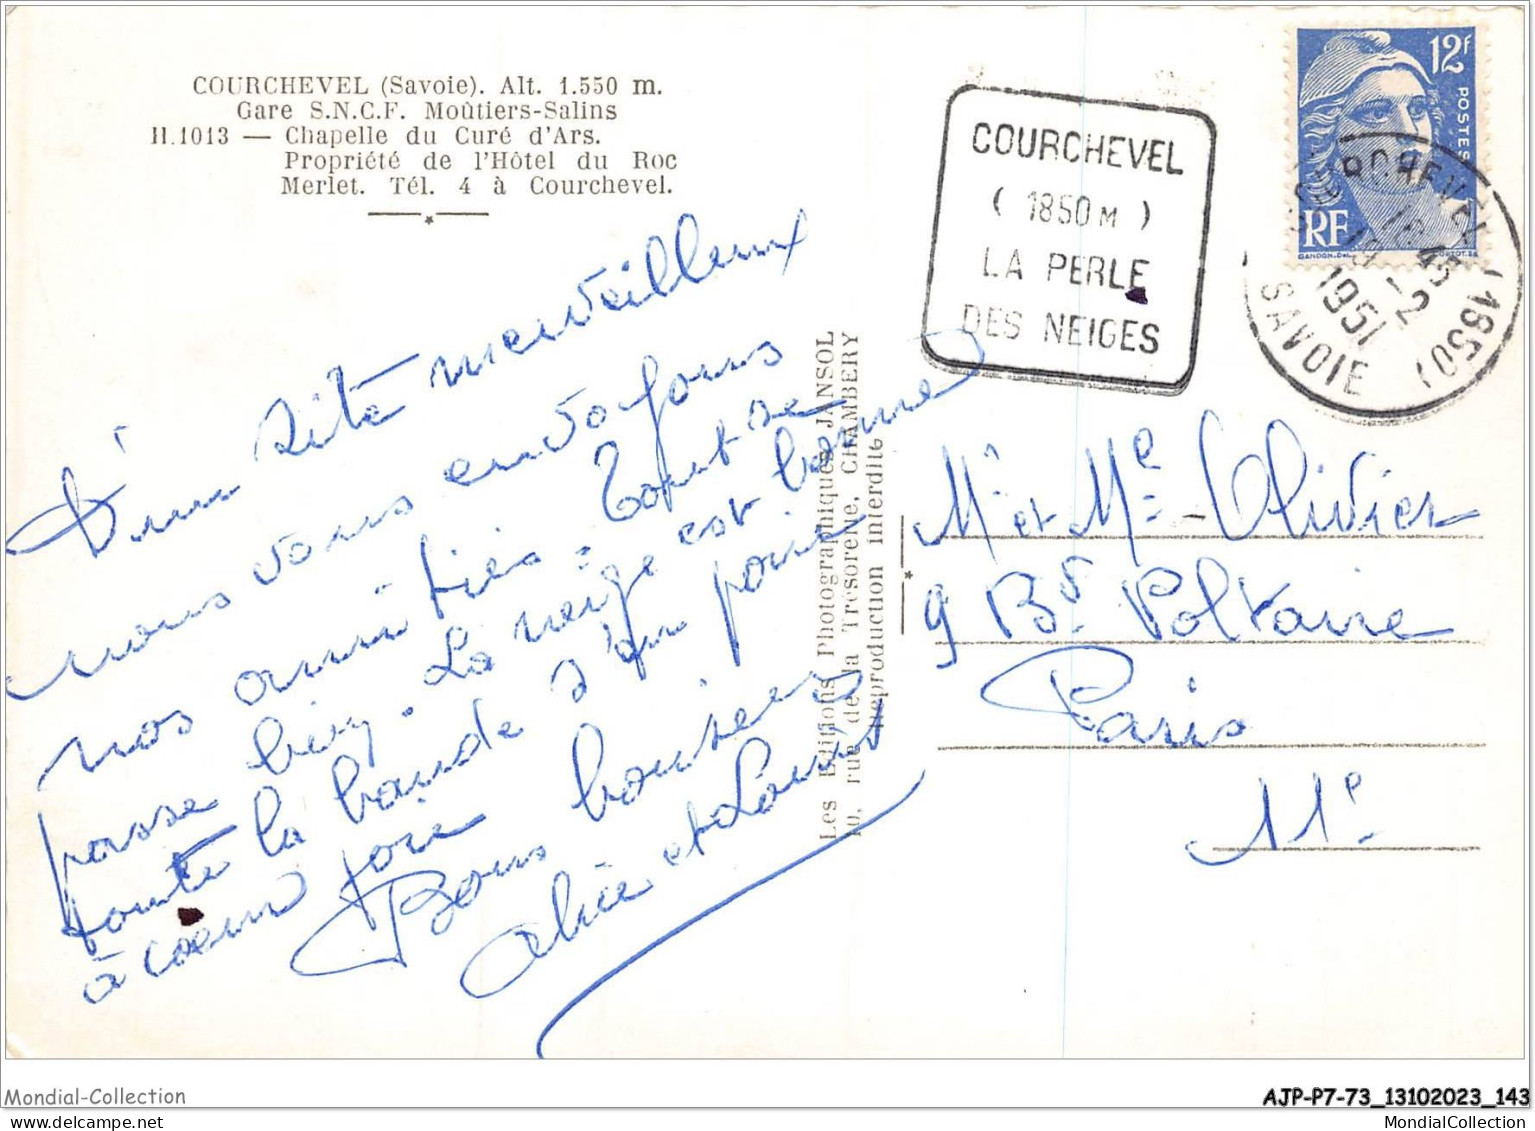 COURCHEVEL (Savoie). Alt. 1.550 m.
Gare S.N.C.F. Moûtiers-Salins
H.1013 — Chapelle du Curé d'Ars.
Propriété de l'Hôtel du Roc
Merlet. Tél. 4 à Courchevel.
D'un site merveilleux
nous vous envoyons
nos amitiés. Tout se
passe bien. La neige est bonne
toute la bande s'en
à cœur joie
Bons baisers
Alice et Louis
Les Editions Photographiques JANSOL
10, rue de la Trésorerie, CHAMBÉRY
Reproduction interdite
COURCHEVEL
( 1850 M )
LA PERLE
DES NEIGES
12F
POSTES
RF
GANDON.DEL.
CORTOT.SC
COURCHEVEL (1850)
16 45
19 - 2
1951
SAVOIE
Mr et Me Olivier
9 Bd Voltaire
Paris
11e
Mondial-Collection
AJP-P7-73_13102023_143
MondialCollection